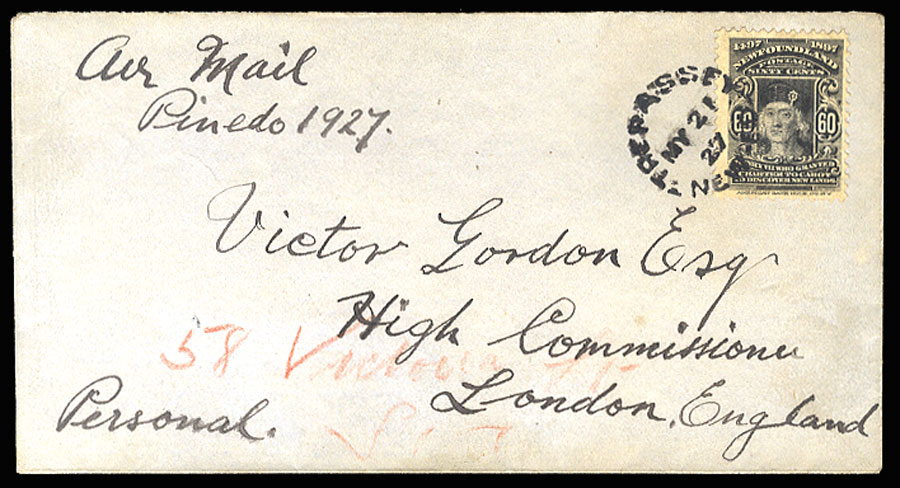 Air Mail
Pinedo 1927.
1497 1897
NEWFOUNDLAND
POSTAGE
SIXTY CENTS
60 60
HENRY VII WHO GRANTED
CHARTER TO CABOT
TO DISCOVER NEW LANDS
TREPASSEY
MY 21
27
NEW
Victor Gordon Esq
High Commissioner
58 Victoria
London, England
Personal.